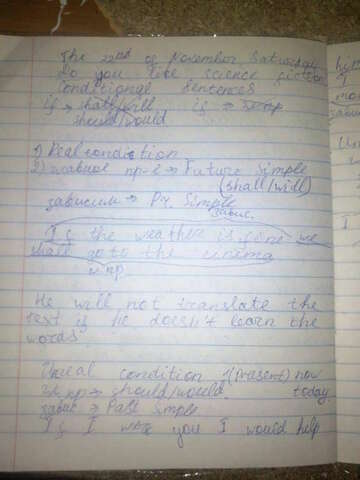 The 22nd of November Saturday
Do you like science fiction
Conditional sentences
if → shall/will if →
should/would
1) Real condition
2) → Future Simple
(shall/will)
→ Pr. Simple
If the weather is fine we
shall go to the cinema
He will not translate the
text if he doesn't learn the
words.
Unreal condition 1(Present) now
→ should/would today
→ Past Simple
If I were you I would help